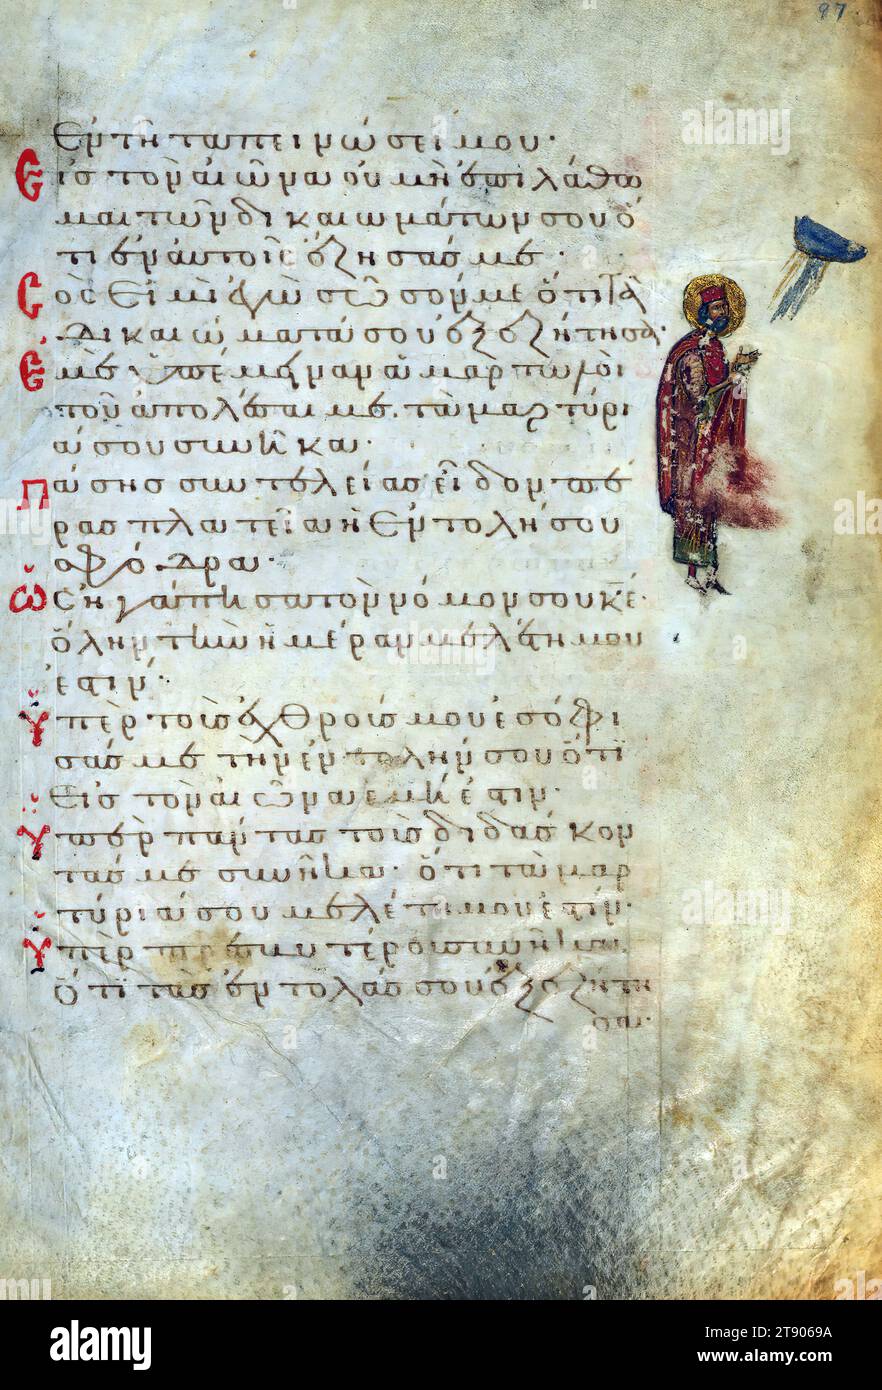 97
ἐν τῇ ταπεινώσει μου·
Εἰς τὸν αἰῶνα οὐ μὴ ἐπιλάθω
μαι τῶν δικαιωμάτων σου ὅ
τι ἐν αὐτοῖς ἔζησάς με·
Σός εἰμι ἐγὼ σῶσόν με ὅτι τὰ
δικαιώματά σου ἐξεζήτησα·
Ἐμὲ ὑπέμειναν ἁμαρτωλοὶ
τοῦ ἀπολέσαι με. τὰ μαρτύρι
ά σου συνῆκα·
Πάσης συντελείας εἶδον πέ
ρας πλατεῖα ἡ ἐντολή σου
σφόδρα·
Ὡς ἠγάπησα τὸν νόμον σου κε·
ὅλην τὴν ἡμέραν μελέτη μου
ἐστιν·
Ὑπὲρ τοὺς ἐχθρούς μου ἐσόφι
σάς με τὴν ἐντολήν σου ὅτι
εἰς τὸν αἰῶνα ἐμή ἐστιν·
Ὑπὲρ πάντας τοὺς διδάσκον
τάς με συνῆκα· ὅτι τὰ μαρ
τύριά σου μελέτη μου ἐστιν·
Ὑπὲρ πρεσβυτέρους συνῆκα.
ὅτι τὰς ἐντολάς σου ἐξεζήτη
σα·
alamy
Image ID: 2T9069A
www.alamy.com